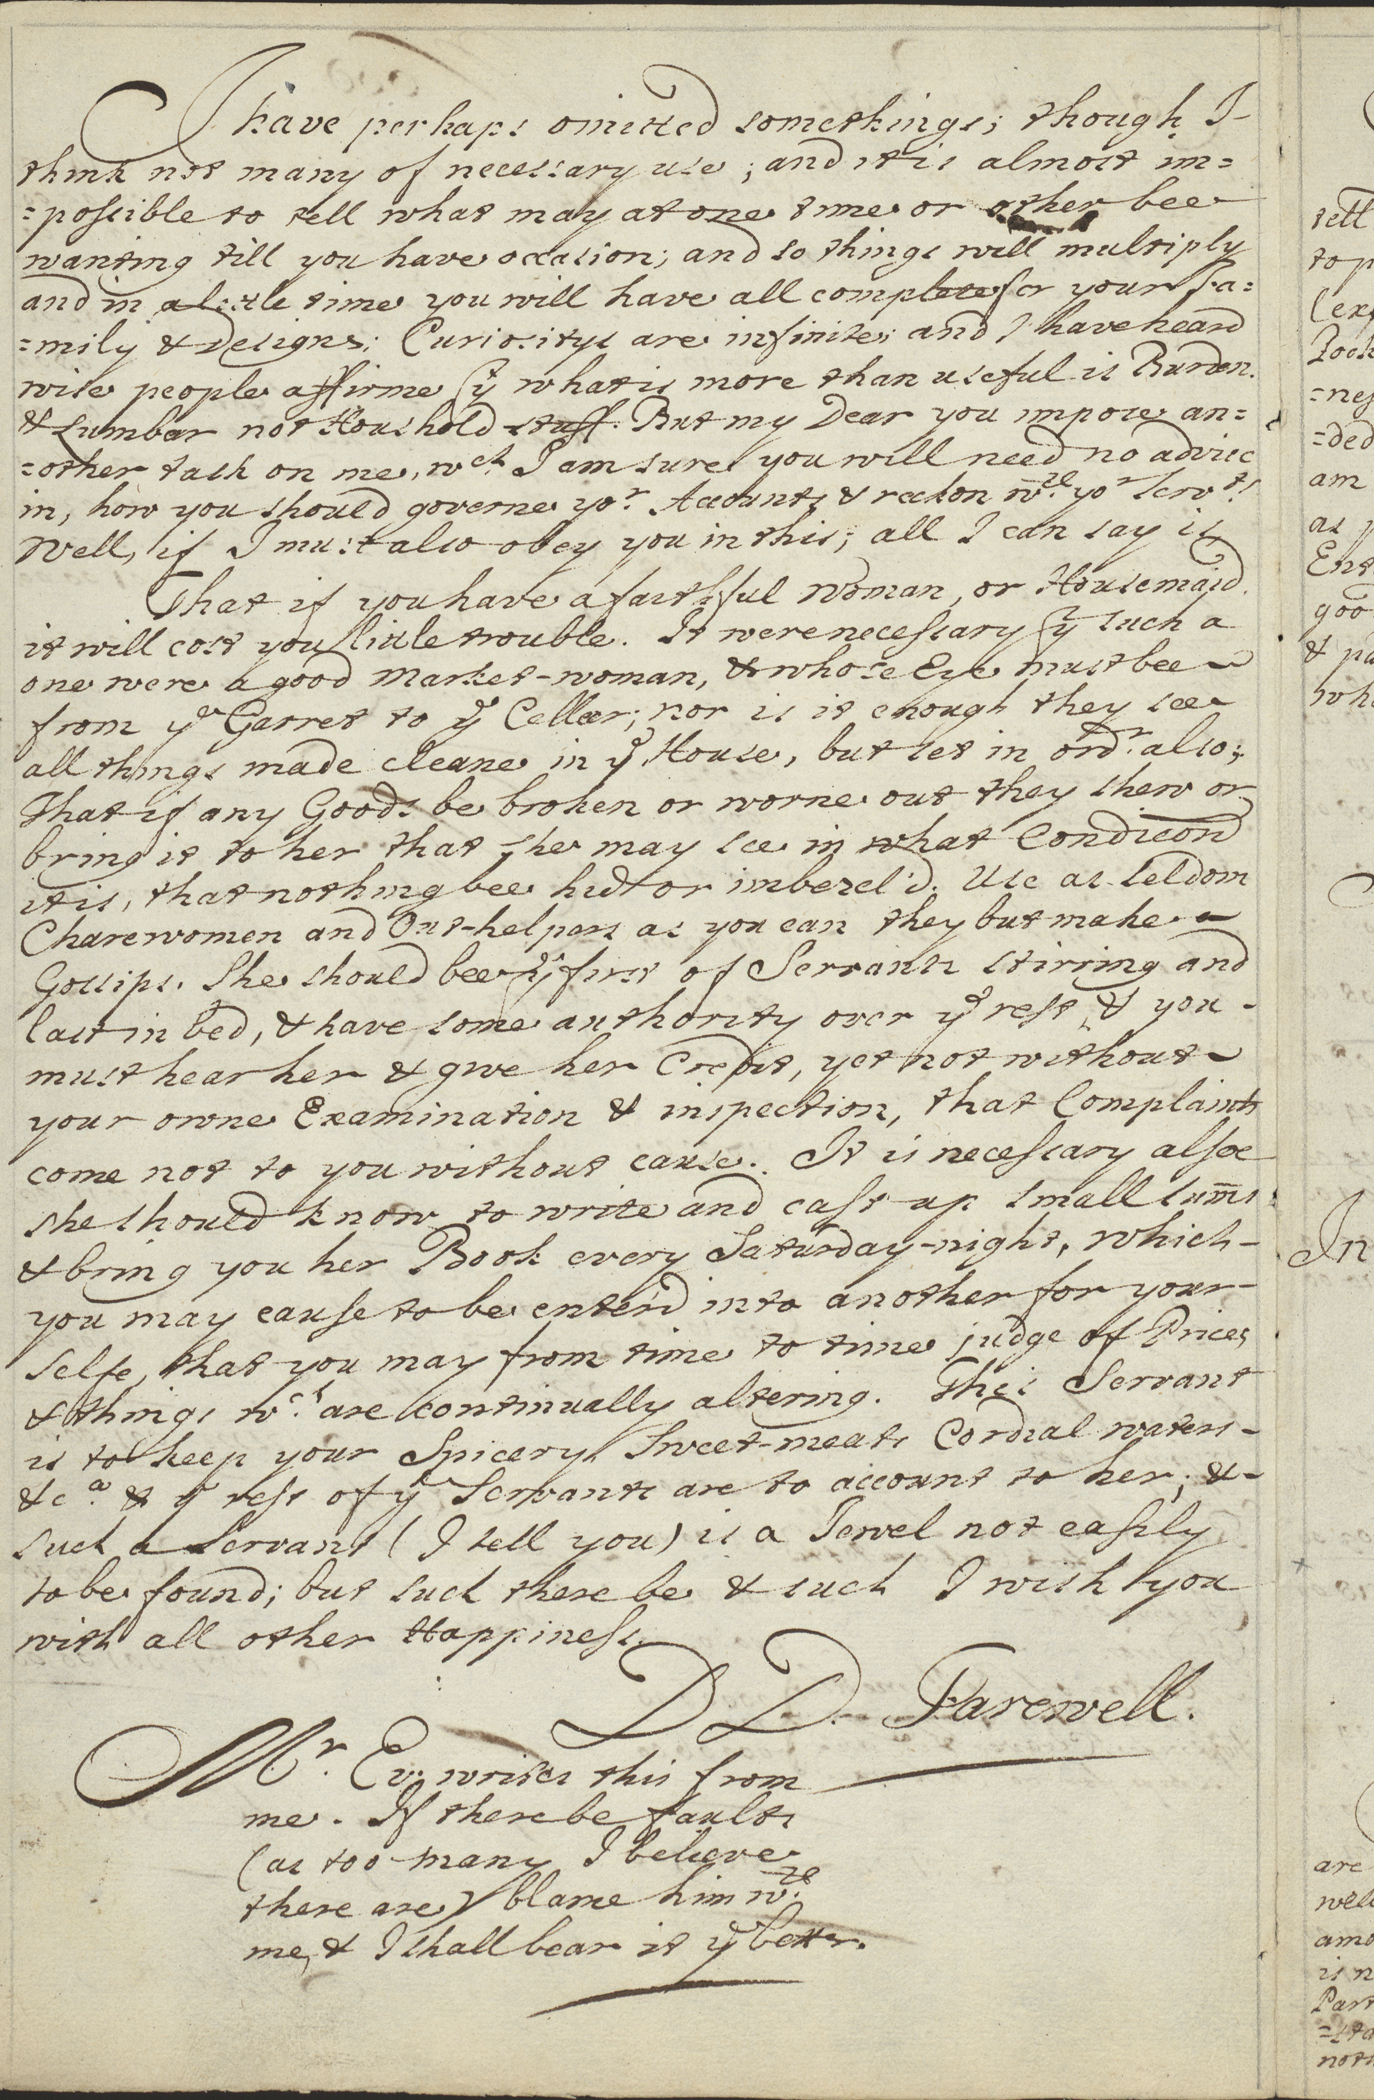 I have perhaps omitted somethings; though I-
think not many of necessary use; and it is almost im=
=possible to tell what may at one time or other bee
wanting till you have occasion; and so things will multiply
and in a little time you will have all complete for your Fa=
=mily & Designs: Curiositys are infinite; and I have heard
wise people affirme yt what is more than useful is Burden
& Lumbar not Houshold stuff. But my Dear you impose an=
=other task on me, wch I am sure you will need no advice
in, how you should governe yor Accounts & reckon wth yor servts!
Well, if I must also obey you in this; all I can say is
That if you have a faithful Woman, or Housemaid
it will cost you little trouble. It were necessary yt such a
one were a good Market-woman, & whose Eye must bee
from ye Garret to ye Cellar; nor is it enough they see
all things made cleane in ye House, but set in ordr also;
That if any Goods be broken or worne out they shew or
bring it to her that she may see in what Condicon
it is, that nothing bee hid or imbezel'd. Use as seldom
Charewomen and Out-helpers as you can they but make
Gossips. She should bee ye first of Servants stirring and
last in bed, & have some authority over ye rest, & you-
must hear her & give her Credit, yet not without
your owne Examination & inspection, that Complaints
come not to you without cause. It is necessary alsoe
she should know to write and cast up small sums
& bring you her Book every Saturday-night, which-
you may cause to be enter'd into another for your-
selfe, that you may from time to time judge of Prices
& things wch are continually altering. This Servant
is to keep your Spicery, Sweet-meats Cordial waters-
&ca & ye rest of ye Servants are to account to her; &-
such a Servant (I tell you) is a Jewel not easily
to be found; but such there be & such I wish you
with all other Happiness.
D. D. Farewell.
Mr. Ev: writes this from
me. If there be faults
(as too many I believe
there are) blame him wth
me, & I shall bear it ye better.
tell
to p
(exc
Pock
=nes
=ded
am
as
Ent
goo
& pa
wh
In
are
well
amo
is n
Part
=sta
not